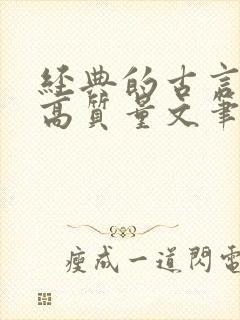 經典的古言
高質量文筆
瘦成一道閃電